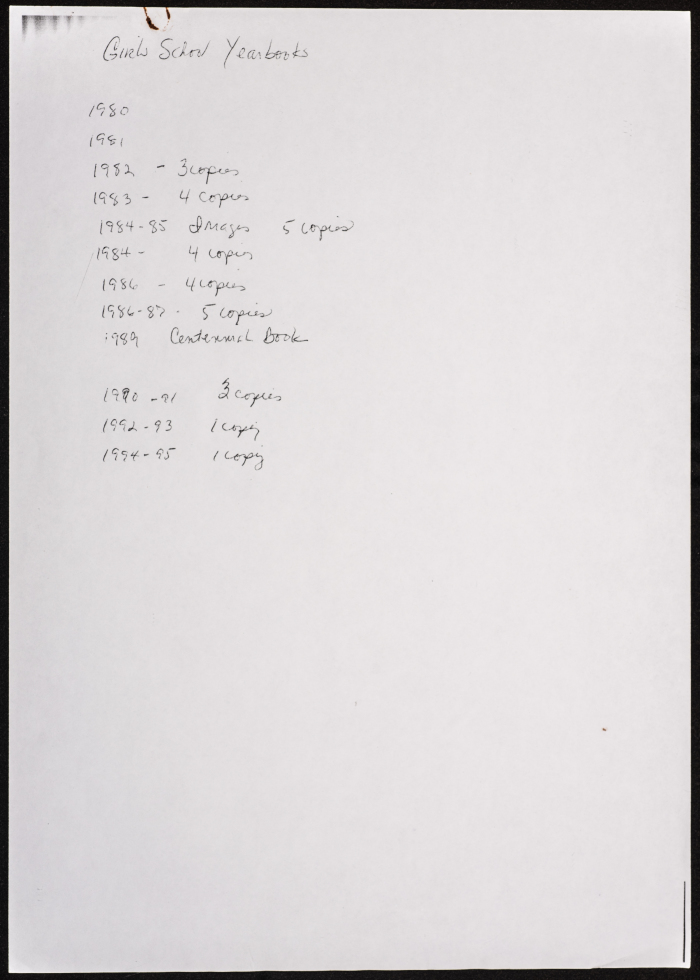 Girls School Yearbooks
1980
1981
1982 - 3 copies
1983 - 4 copies
1984-85 Images 5 copies
1984 - 4 copies
1986 - 4 copies
1986-87 - 5 copies
1989 Centennial Book
1990-91 3 copies
1992-93 1 copy
1994-95 1 copy